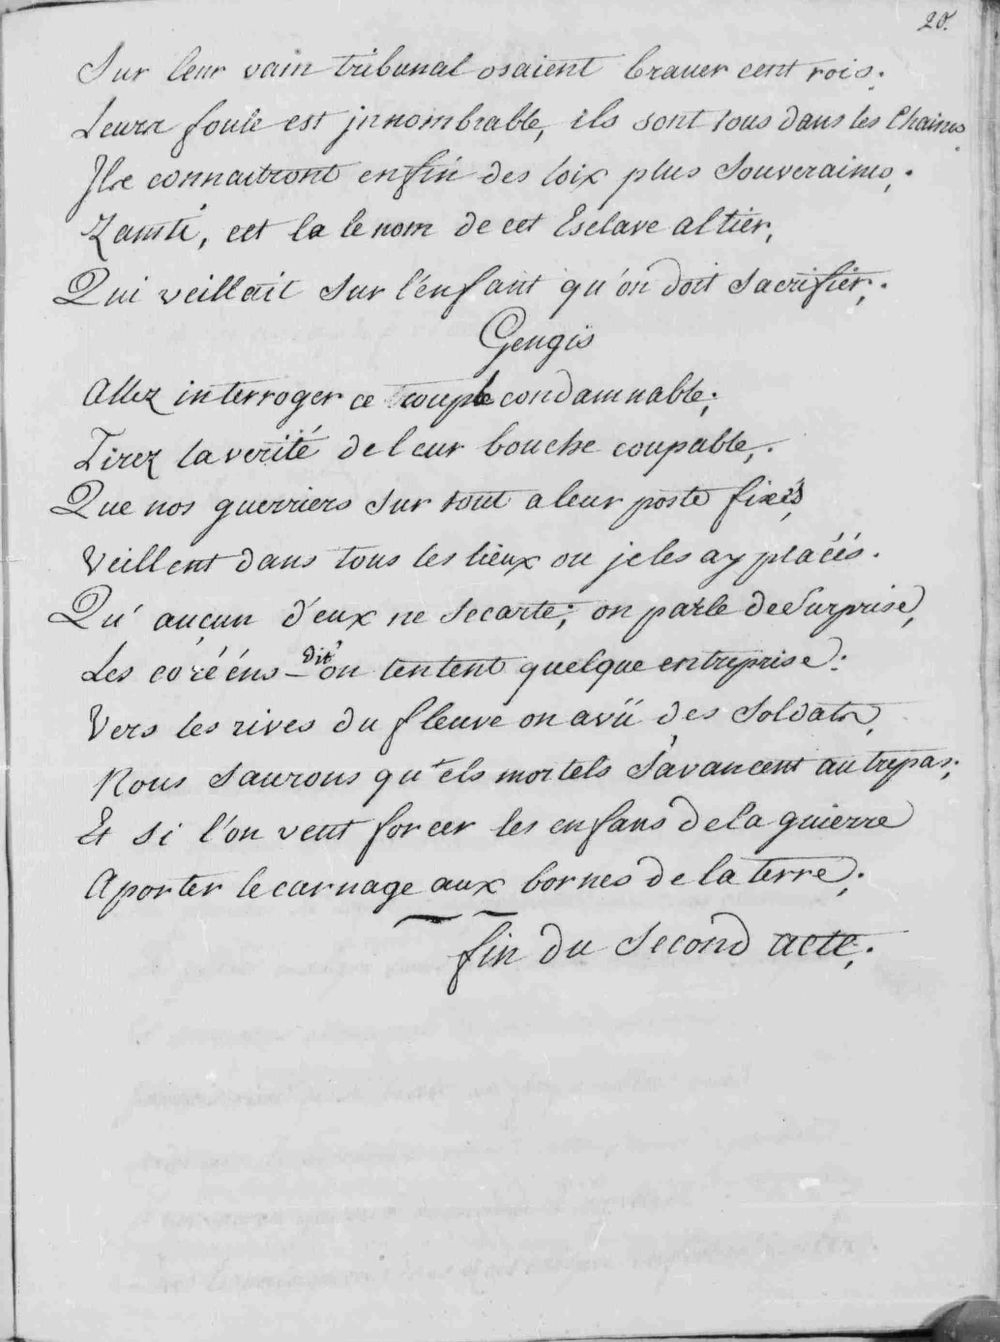 20.
Sur leur vain tribunal osaient braver cent rois.
Leurs foule est jnnombrable, ils sont tous dans les Chaines
Ils connaitront enfin des loix plus Souveraines,.
Zamti, cet la le nom de cet Esclave altier,
Qui veillait Sur l'enfant qu'on doit Sacrifier,.
Gengis
Allez interroger ce couple condamnable;
Tirez la verité de leur bouche coupable,.
Que nos guerriers Sur tout a leur poste fixés
Veillent dans tous les lieux ou je les ay placés.
Qu'aucun d'eux ne Secarte; on parle de Surprise,
Les coréens - dit on tentent quelque entreprise:
Vers les rives du fleuve on a vü des Soldats,
Nous Saurons quels mortels S'avancent au trepas;
Et Si l'on veut forcer les enfans de la guierre
Aporter le carnage aux bornes de la terre,.
fin du Second acte,.